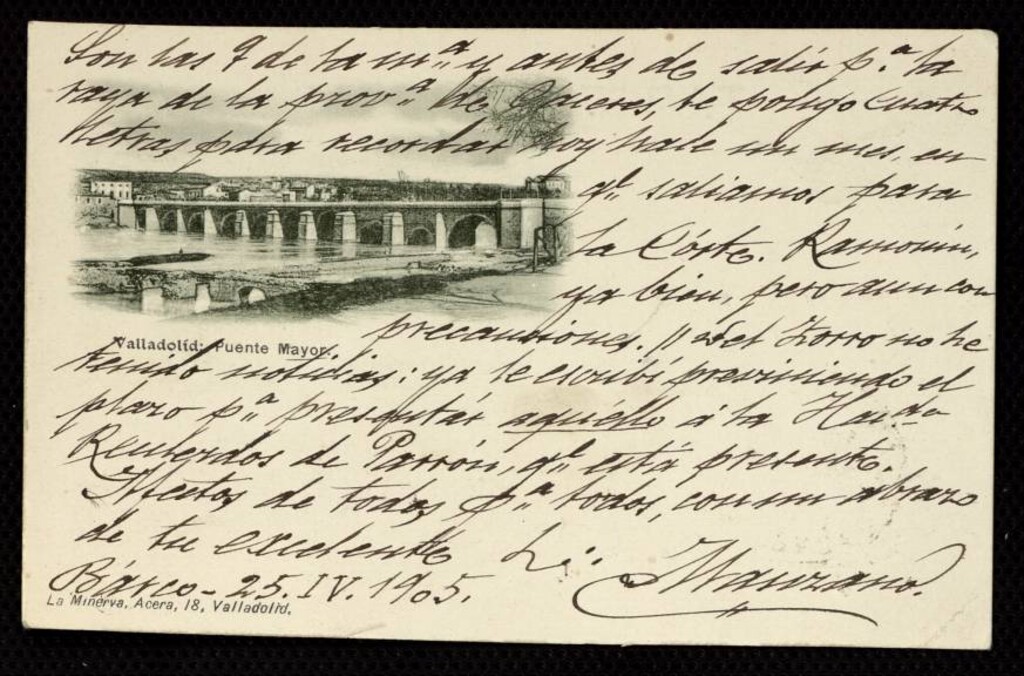 Son las 9 de la mª y antes de salir pª la
raya de la provª de Cáceres, te pongo cuatro
letras para recordar hoy hace un mes, en
qᵉ saliamos para
la Córte. Ramonín,
ya bien, pero aun con
precauciones. // Del Zorro no he
Valladolid: Puente Mayor.
tenido noticias: ya le escribí previniendo el
plazo pª presentár aquéllo á la Hacdª
Recuerdos de Parrón, qᵉ está presente.
Afectos de todos pª todos, con un abrazo
de tu excelente
Manzano
Bárco - 25. IV. 1905.
La Minerva, Acera, 18, Valladolid.